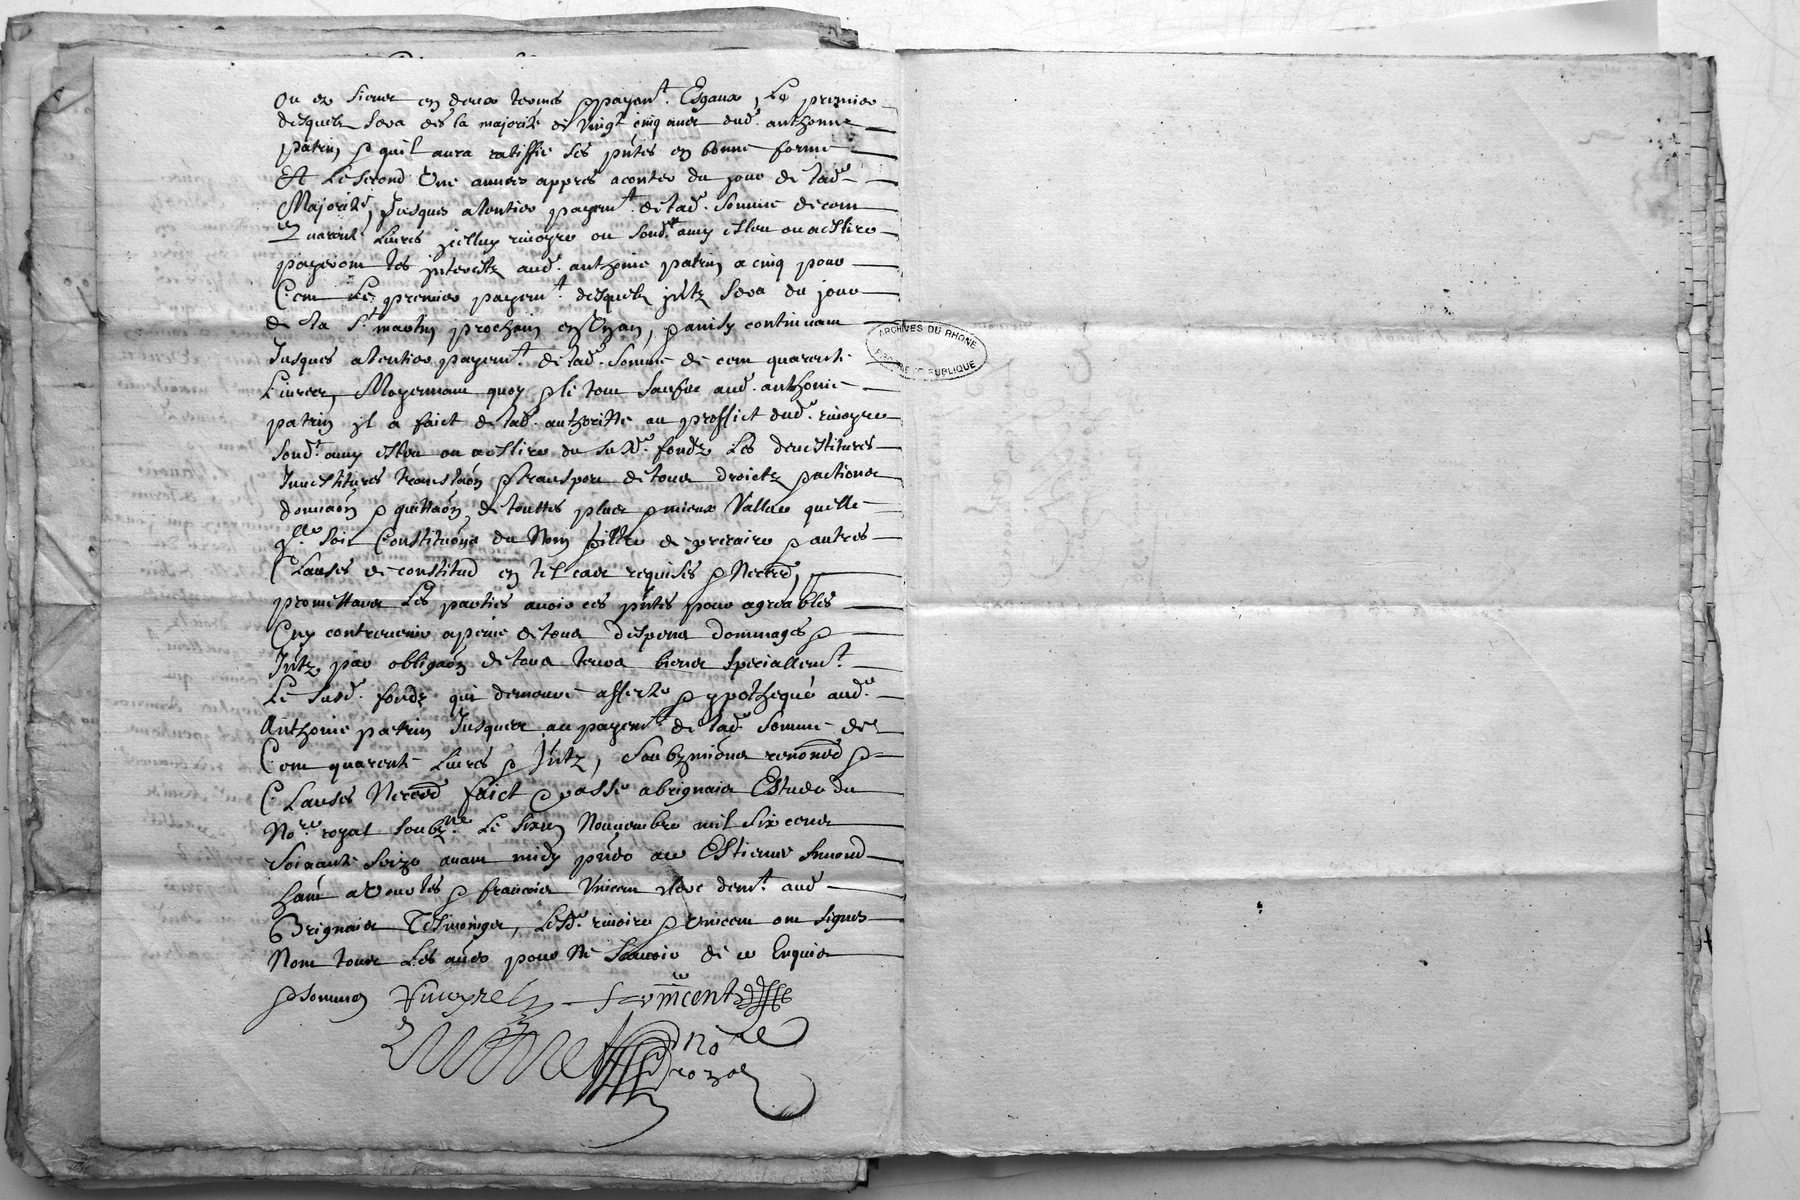 ou es siens en deux termes & payem.t Esgaux, Le premier
desquels sera des la majorité de vingt cinq ans dud. anthoine
patrin & quil aura ratiffié ses pntes en bonne forme
Et Le second Une année appres a conter du jour de lad.e
Majorité, Jusques a lentier payem.t de lad. somme de cent
quarante Livres icelluy rinoyre ou sond. amy esleu ou a eslire
payeront les interestz aud. anthoine patrin a cinq pour
Cent Le premier payem.t desquels jntz sera du jour
de la S.t martin prochain en Un an, & ainsy continuant
Jusques a lentier payem.t de lad. somme de cent quarante
Livres, Moyennant quoy & le tout sauf aud. anthoine
patrin il a faict de lad. authoritté au proffict dud. rinoyre
sond. amy esleu ou a eslire du susd. fondz Les devestitures
Investitures translaon & transport de tous droictz & actions
donnaon & quittaon de touttes plus & mieux Vallue quelle
q.lle soit Constituons du Nom tiltre de precaire & autres
Clauses de constitud en tel cas requises & Necess.
promettans Les parties avoir ces pntes pour agreables
Ny contrevenir a peine de tous despens dommages &
Jntz par obligaon de tous leurs biens speciallem.t
Le susd. fondz qui demeure affecté & ypothequé aud.
Anthoine patrin Jusques au payem.t de lad. somme de
Cent quarente Livres & Jntz, soubzmions renond &
Clauses Necess faict & passé a brignais Estude du
No.re royal soubz.né Le Sixie Novembre mil six cens
soixante seize avant midy pnts Estienne
& françois Vincent dem.t aud
Brignais Tesmoings, Lesd. rinoire & vincent ont signés
Non tous Les aues pour Ne scavoir de ce Enquis
& sommes Rinoyre f vincent
no.re
royal
ARCHIVES DU RHONE
PROPRIETE PUBLIQUE